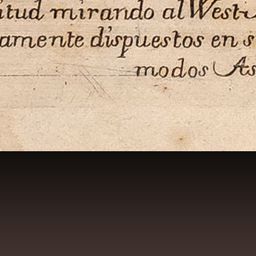 itud mirando al West
amente dispuestos en s
modos As